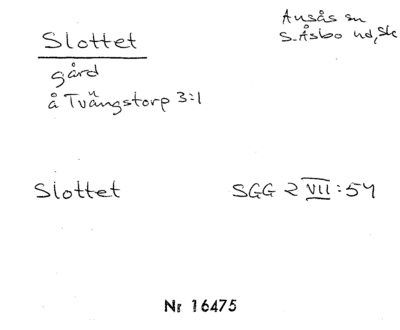 Slottet
Ausås sn
S. Åsbo hd, Sk
gård
å Tvängstorp 3:1
Slottet
SGG 2 VII:54
Nr 16475